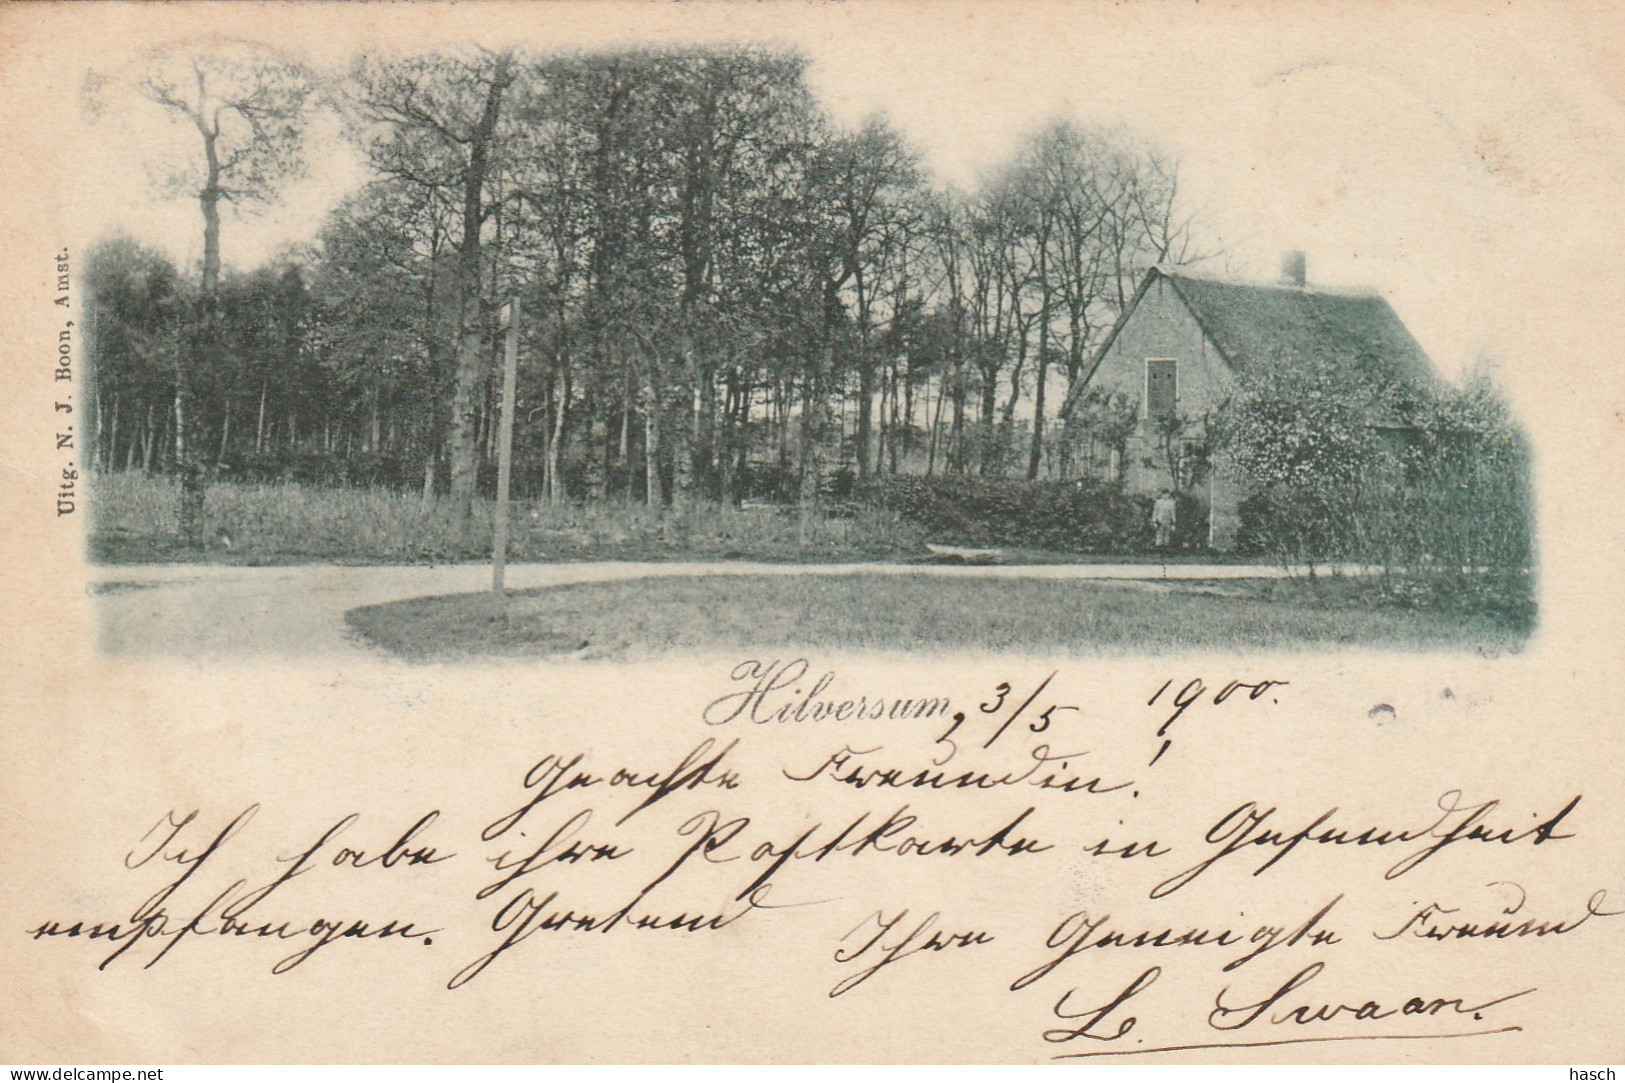 Uitg. N. J. Boon, Amst.
Hilversum, 3/5 1900.
Geachte Freundin!
Ich habe ihre Postkarte in Gesundheit
empfangen. Gretend Ihre Geneigte Freund
L. Swaan.
www.delcampe.net
hasch